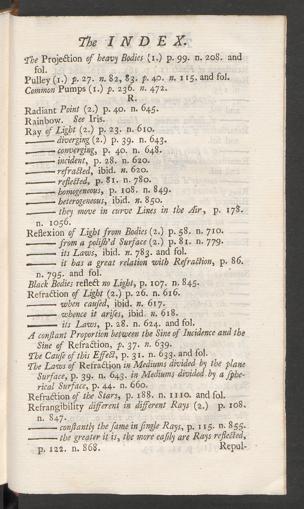 The INDEX.
The Projection of heavy Bodies (1.) p. 99. n. 208. and
fol.
Pulley (1.) p. 27. n. 82, 83. p. 40. n. 115. and fol.
Common Pumps (1.) p. 236. n. 472.
R.
Radiant Point (2.) p. 40. n. 645.
Rainbow. See Iris.
Ray of Light (2.) p. 23. n. 610.
—— diverging (2.) p. 39. n. 643.
—— converging, p. 40. n. 648.
—— incident, p. 28. n. 620.
—— refracted, ibid. n. 620.
—— reflected, p. 81. n. 780.
—— homogeneous, p. 108. n. 849.
—— heterogeneous, ibid. n. 850.
—— they move in curve Lines in the Air, p. 178.
n. 1056.
Reflexion of Light from Bodies (2.) p. 58. n. 710.
—— from a polish'd Surface (2.) p. 81. n. 779.
—— its Laws, ibid. n. 783. and fol.
—— it has a great relation with Refraction, p. 86.
n. 795. and fol.
Black Bodies reflect no Light, p. 107. n. 845.
Refraction of Light (2.) p. 26. n. 616.
—— when caused, ibid. n. 617.
—— whence it arises, ibid. n. 618.
—— its Laws, p. 28. n. 624. and fol.
A constant Proportion between the Sine of Incidence and the
Sine of Refraction, p. 37. n. 639.
The Cause of this Effect, p. 31. n. 633. and fol.
The Laws of Refraction in Mediums divided by the plane
Surface, p. 39. n. 643. in Mediums divided by a sphe-
rical Surface, p. 44. n. 660.
Refraction of the Stars, p. 188. n. 1110. and fol.
Refrangibility different in different Rays (2.) p. 108.
n. 847.
—— constantly the same in single Rays, p. 115. n. 855.
—— the greater it is, the more easily are Rays reflected,
p. 122. n. 868. Repul-